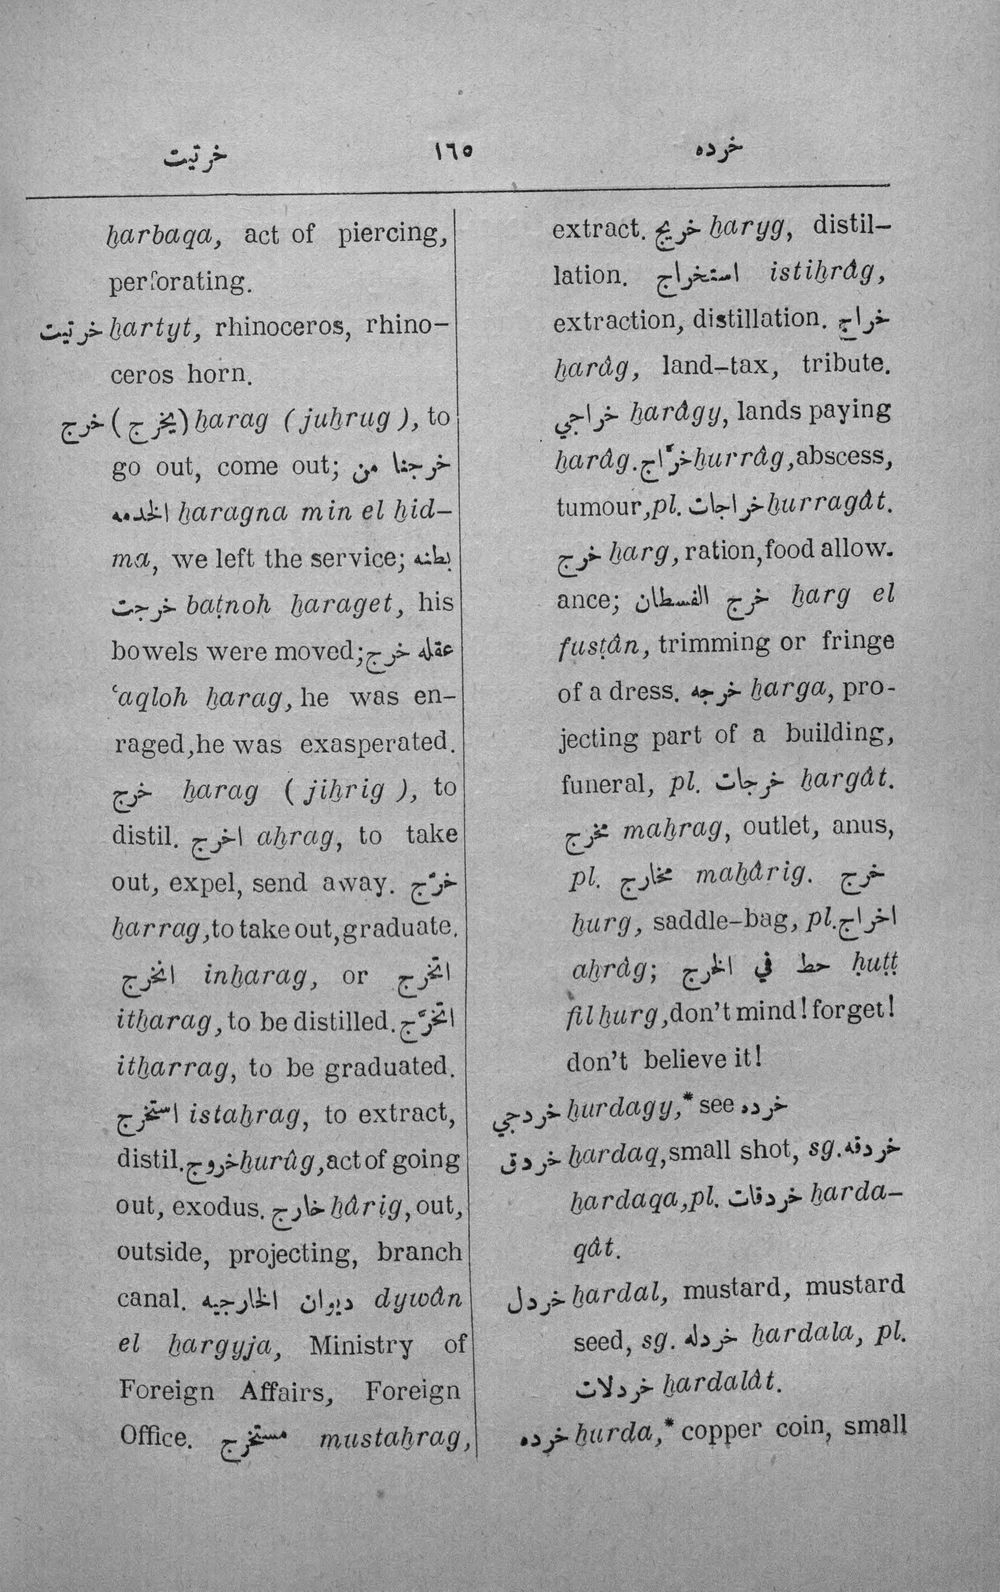 خرتيت ١٦٥ خرده
ḫarbaqa, act of piercing,
perforating.
خرتيت ḫartyt, rhinoceros, rhino-
ceros horn.
خرج (يخرج) ḫarag (juḫrug), to
go out, come out; خرجنا من
الخدمه ḫaragna min el ḫid-
ma, we left the service; بطنه
خرجت baṭnoh ḫaraget, his
bowels were moved; عقله خرج
ʿaqloh ḫarag, he was en-
raged, he was exasperated.
خرج ḫarag (jiḫrig), to
distil. اخرج aḫrag, to take
out, expel, send away. خرّج
ḫarrag, to take out, graduate.
انخرج inḫarag, or اتخرج
itḫarag, to be distilled. اتخرّج
itḫarrag, to be graduated.
استخرج istaḫrag, to extract,
distil. خروج ḫurûg, act of going
out, exodus. خارج ḫârig, out,
outside, projecting, branch
canal. ديوان الخارجيه dywân
el ḫargyja, Ministry of
Foreign Affairs, Foreign
Office. مستخرج mustaḫrag,
extract. خريج ḫaryg, distil-
lation. استخراج istiḫrâg,
extraction, distillation. خراج
ḫarâg, land-tax, tribute.
خراجي ḫarâgy, lands paying
ḫarâg. خرّاج ḫurrâg, abscess,
tumour, pl. خراجات ḫurragât.
خرج ḫarg, ration, food allow-
ance; خرج الفسطان ḫarg el
fusṭân, trimming or fringe
of a dress. خرجه ḫarga, pro-
jecting part of a building,
funeral, pl. خرجات ḫargât.
مخرج maḫrag, outlet, anus,
pl. مخارج maḫârig. خرج
ḫurg, saddle-bag, pl. اخراج
aḫrâg; حط في الخرج ḥuṭṭ
fil ḫurg, don't mind! forget!
don't believe it!
خردجي ḫurdagy,* see خرده
خردق ḫardaq, small shot, sg. خردقه
ḫardaqa, pl. خردقات ḫarda-
qât.
خردل ḫardal, mustard, mustard
seed, sg. خردله ḫardala, pl.
خردلات ḫardalât.
خرده ḫurda,* copper coin, small